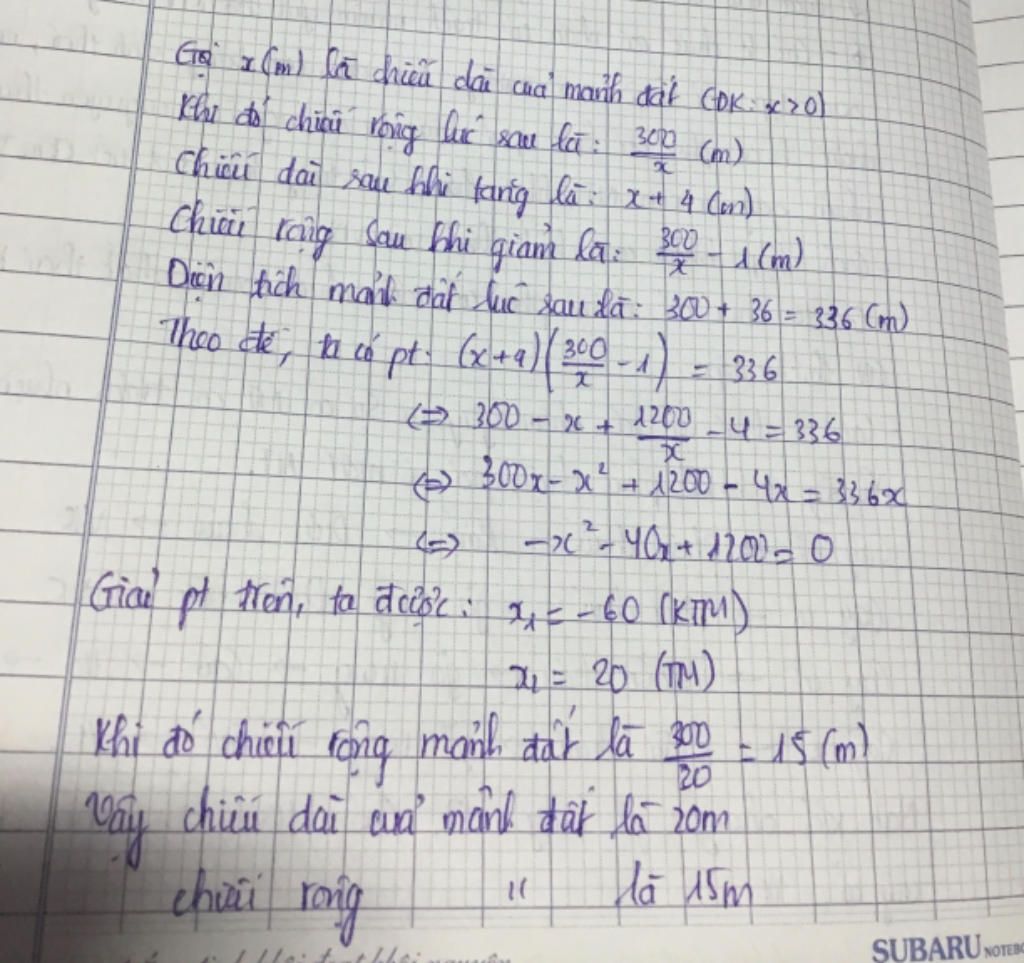 Gọi x(m) là chiều dài của mảnh đất (ĐK: x>0)
Khi đó chiều rộng lúc sau là: 300/x (m)
Chiều dài sau khi tăng là: x + 4 (m)
Chiều rộng sau khi giảm là: 300/x - 1 (m)
Diện tích mảnh đất lúc sau là: 300 + 36 = 336 (m)
Theo đề, ta có pt: (x+4)(300/x - 1) = 336
<=> 300 - x + 1200/x - 4 = 336
<=> 300x - x² + 1200 - 4x = 336x
<=> -x² - 40x + 1200 = 0
Giải pt trên, ta được: x₁ = -60 (KTM)
x₁ = 20 (TM)
Khi đó chiều rộng mảnh đất là 300/20 = 15 (m)
Vậy chiều dài của mảnh đất là 20m
chiều rộng " là 15m
SUBARU NOTEBO